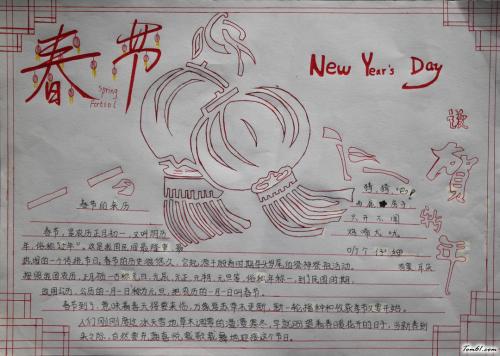 春节
Spring
Festcol
New Year's Day
谈
贺
新
年
春节的来历
猜猜吧!
两扇 房子
大开不闭
春节,是农历正月初一,又叫阴历
年,俗称"过年"。这是我国民间最隆重、最
热闹的一个传统节日。春节的历史很悠久,它起源于殷商时期年头岁尾的祭神祭祖活动。
按照我国农历,正月初一古称元日、元辰、元正、元朔、元旦等,俗称年初一,到了民国时期,
改用公历,公历的一月一日称为元旦,把农历的一月一日叫春节。
春节到了,意味着春天将要来临,万象复苏草木更新,新一轮播种和收获季节又要开始。
人们刚刚度过冰天雪地草木凋零的漫漫寒冬,早就盼望着春暖花开的日子,当新春到
来之际,自然要充满喜悦载歌载舞地迎接这个节日。
Tom61.com